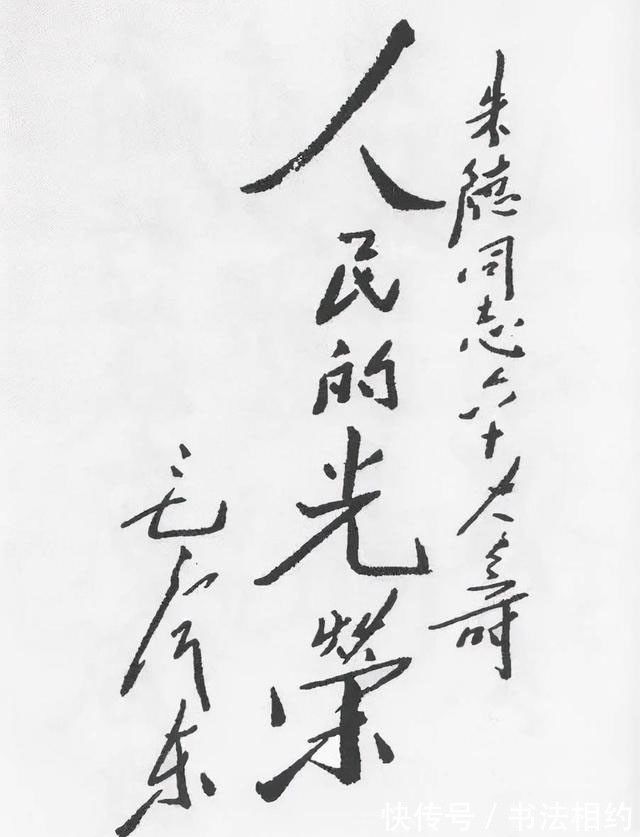 朱德同志六十大寿
人民的光榮
毛泽东
快传号／书法相约